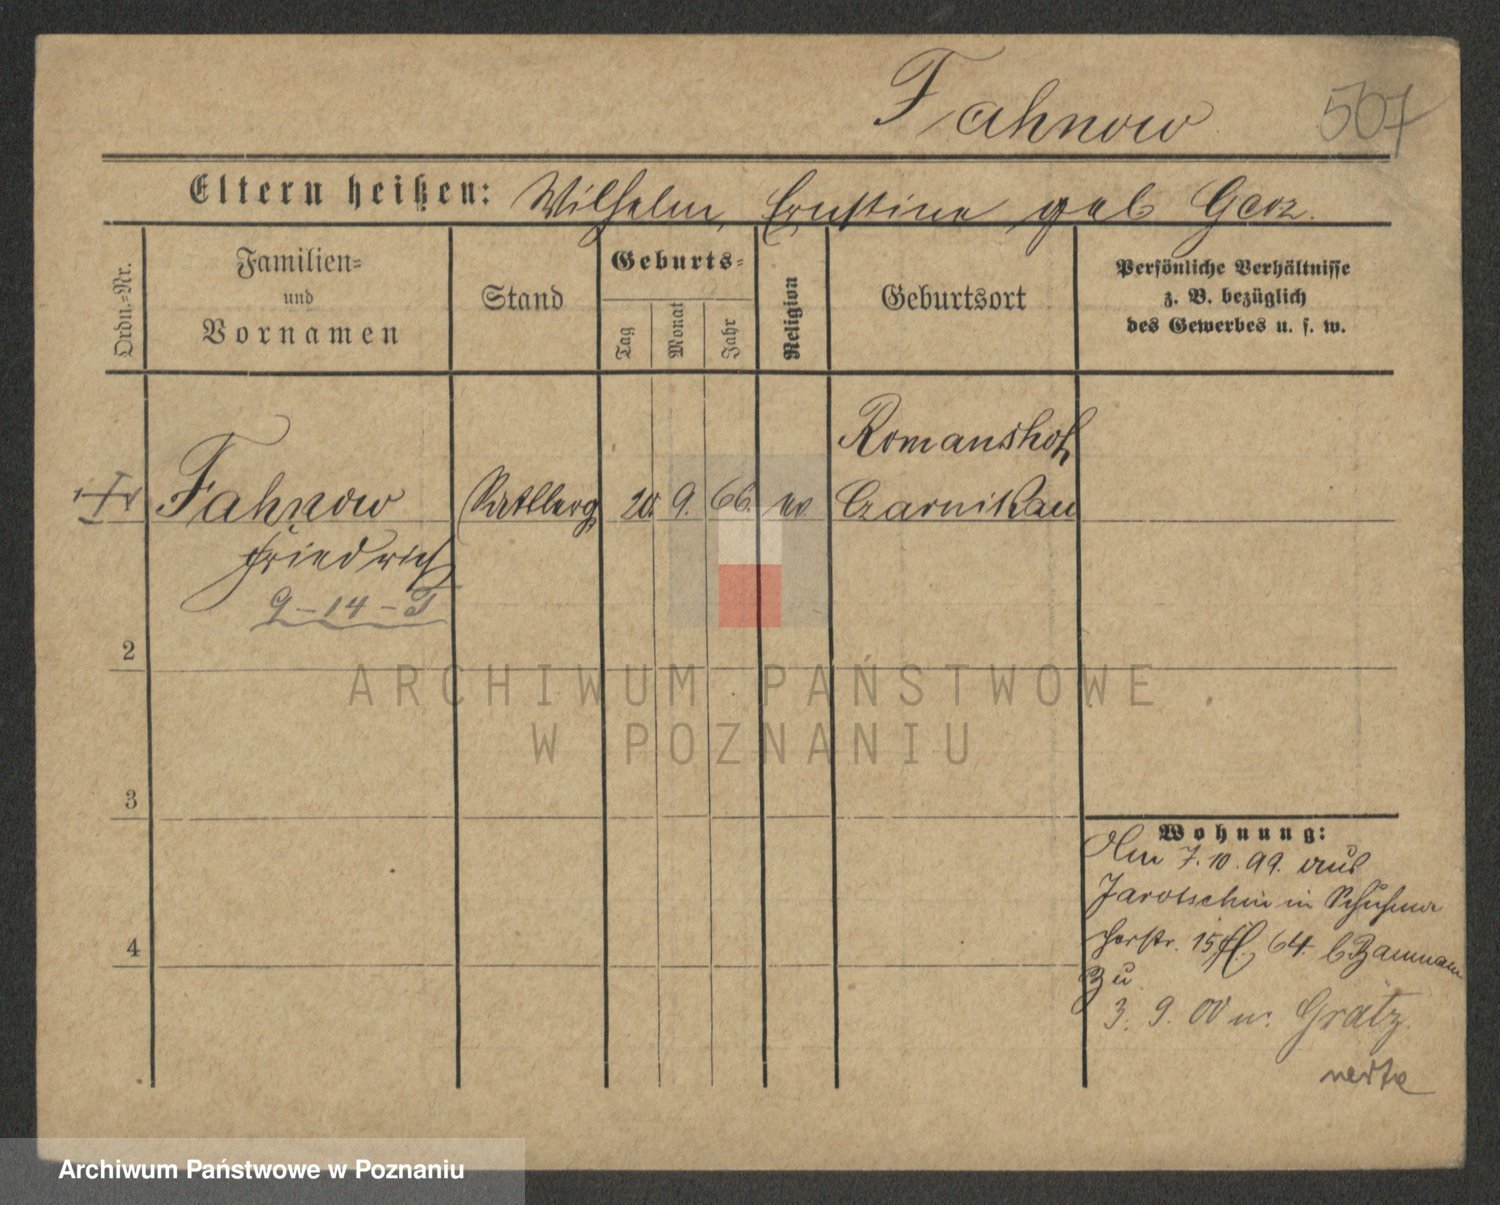 Fahnow 507
Eltern heißen: Wilhelm, Ernstine geb Gerz.
Ordn.-Nr.
Familien-
und
Vornamen
Stand
Geburts-
Tag
Monat
Jahr
Religion
Geburtsort
Persönliche Verhältnisse
z. B. bezüglich
des Gewerbes u. s. w.
Romanshof
Fahnow 20. 9. 66. Czarnikau
Friedrich
9-14-T
2
3
4
Wohnung:
Am 7.10.99. aus
Jarotschin in Schuhma
cherstr. 15 64. b
zu
3. 9. 00 n. Grätz.
ARCHIWUM PAŃSTWOWE
W POZNANIU
Archiwum Państwowe w Poznaniu